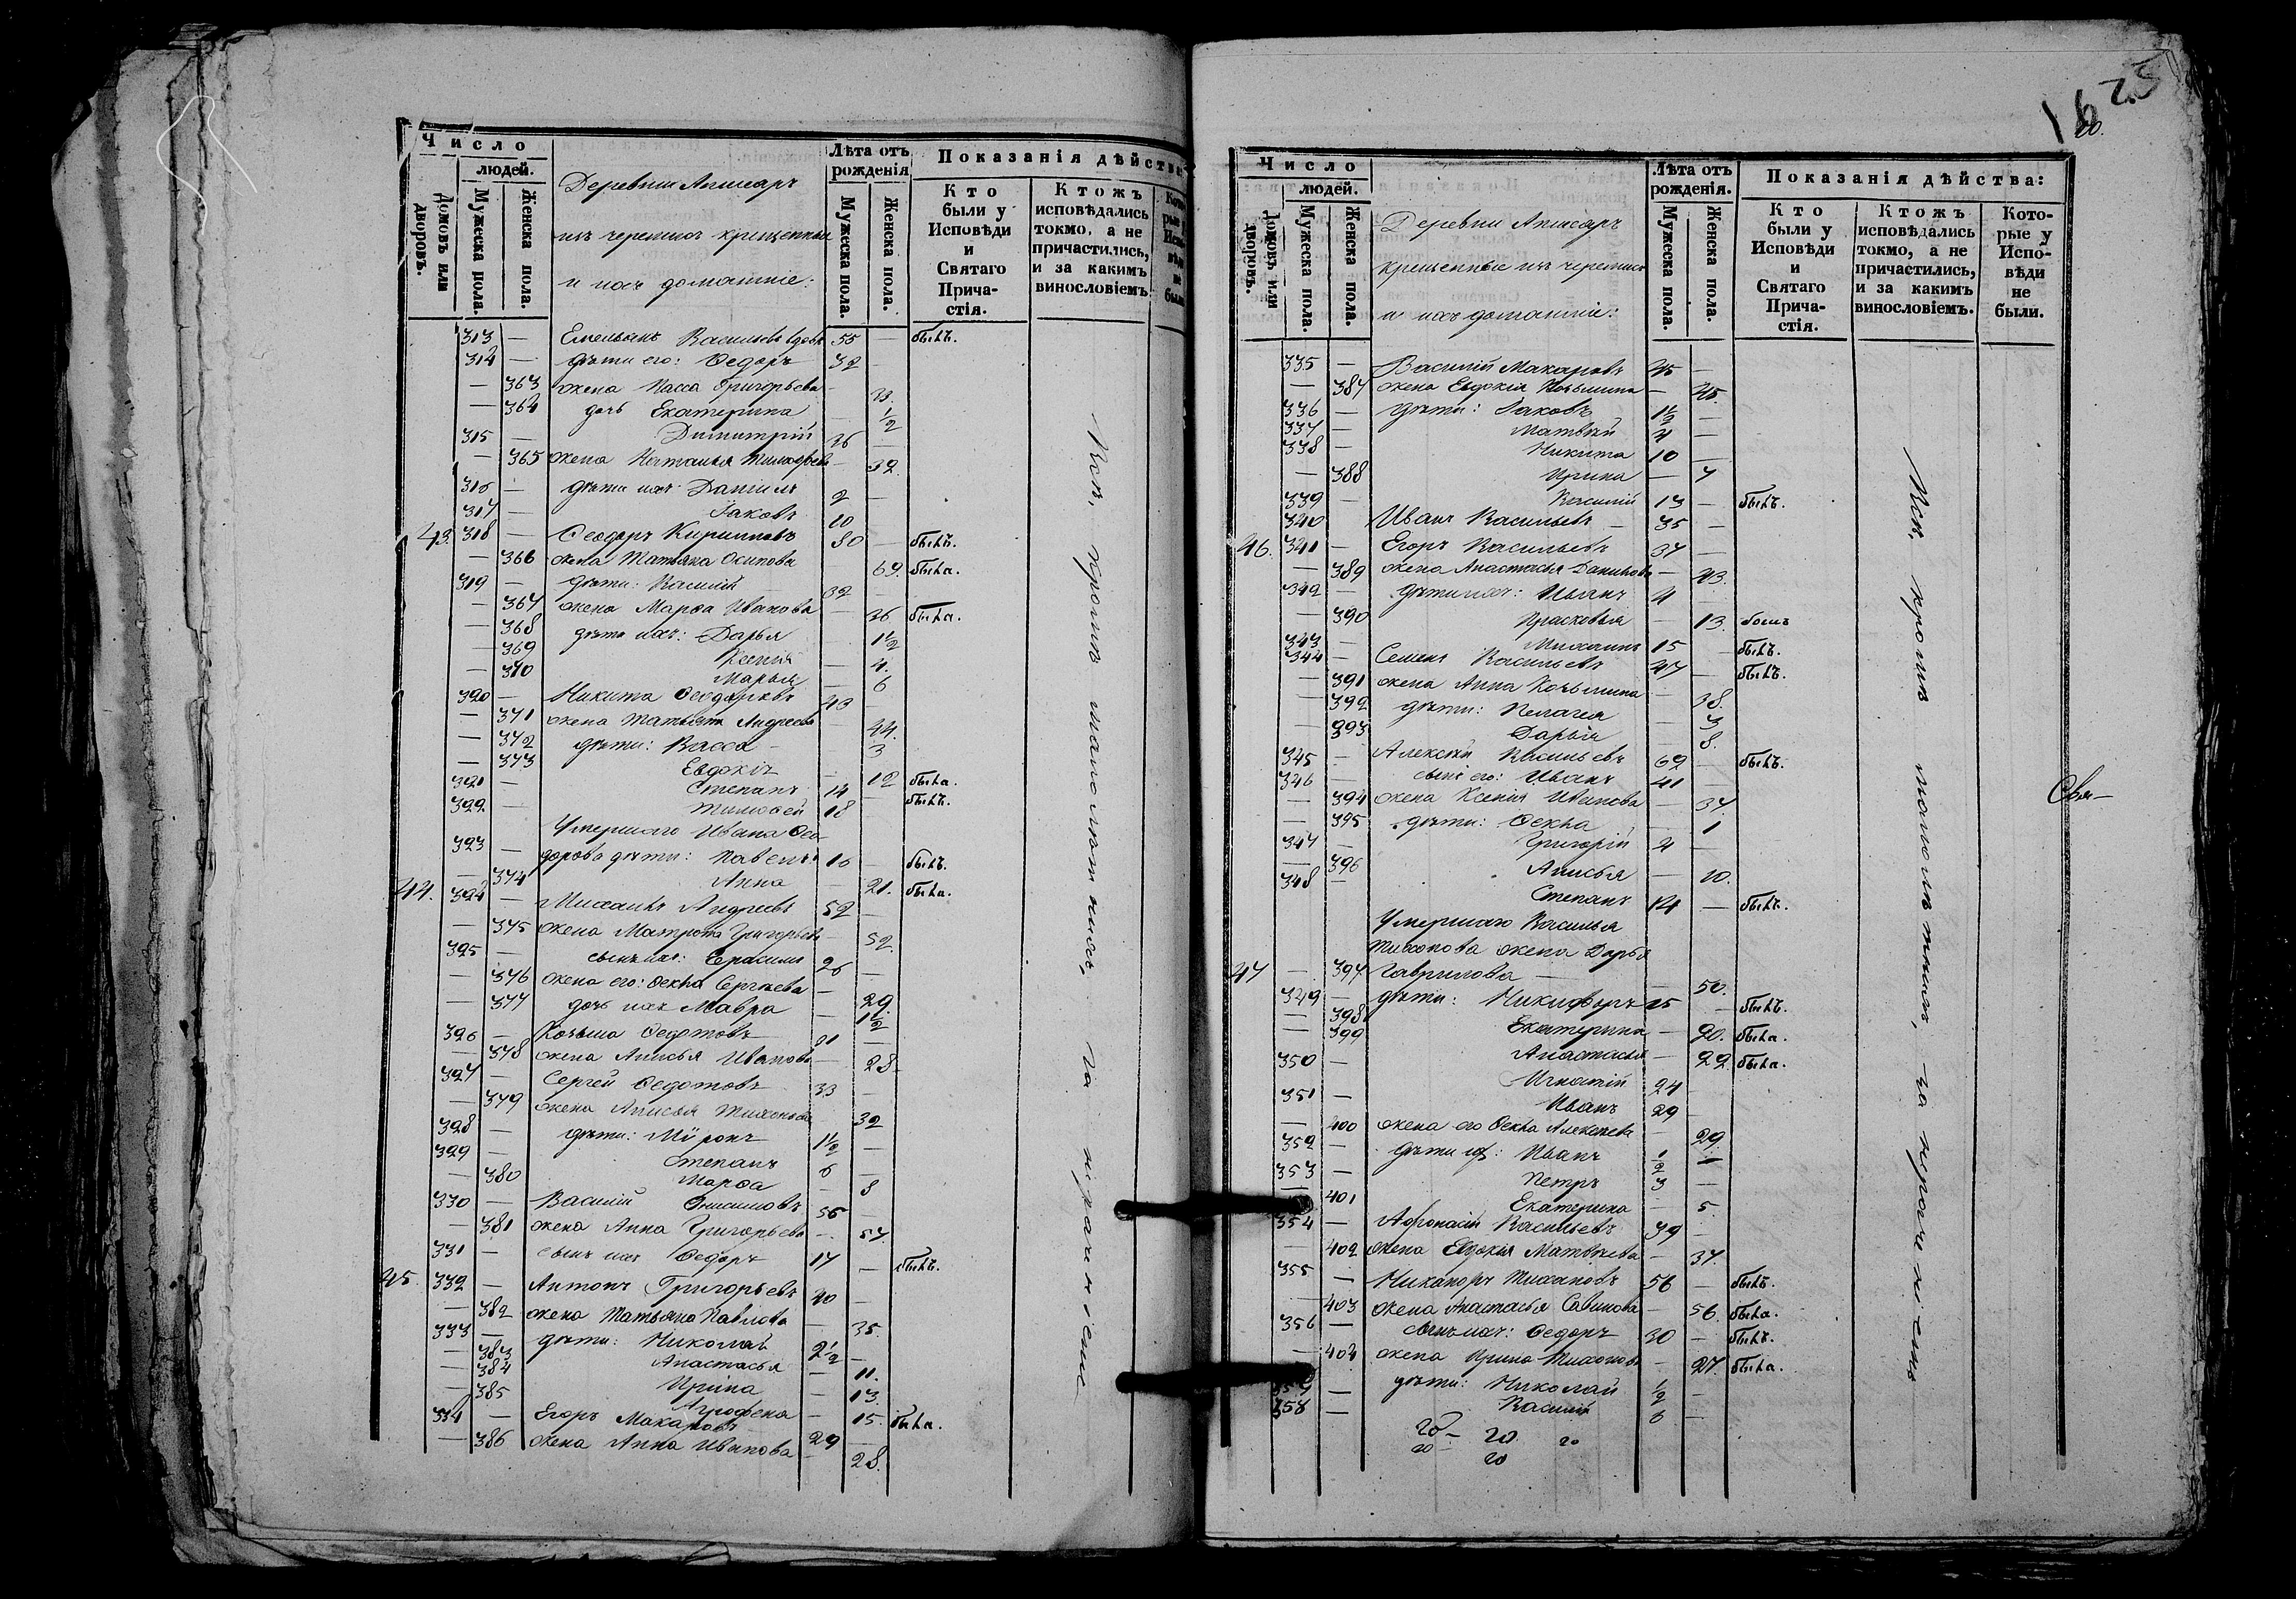 Число
людей.
Домовъ или дворовъ.
Мужеска пола.
Женска пола.
Деревни Апшеаръ
изъ черемисъ крещенныя
и ихъ домашніе:
Лѣта отъ рожденія
Мужеска пола.
Женска пола.
Показанія дѣйства
Кто были у Исповѣди и Святаго Прича-стія.
Ктожъ исповѣдались токмо, а не причастились, и за какимъ винословіемъ.
313 — Емельянъ Васильевъ вдовъ 55 — былъ.
314 — дѣти его: Ѳедоръ 32 —
— 363 жена Васса Григорьева —
— 364 дочь Екатерина — 1/2
315 — Димитрій 36 —
— 365 жена Наталья — 32.
316 — дѣти ихъ: Даніилъ 2 —
317 — Іаковъ 10
43. 318 — Ѳеодоръ Кирилловъ 80 — былъ.
— 366 жена Татьяна Осипова — 69. была.
319 — дѣти: Василій 32 —
— 367 жена Марѳа Иванова — 36 была.
— 368 дѣти ихъ: Дарья 1 1/2
— 369 Ксенія — 4.
— 370 Марья — 6
320 — Никита Ѳеодоровъ 43 —
— 371 жена Татьяна Андреева — 44.
— 372 дѣти: Васса — 3
— 373 Евдокія — 12 была.
321 — Степанъ 14 былъ.
322 — Тимоѳей 18
Умершаго Ивана Ѳео-
323 — дорова дѣти: Павелъ 16 — былъ.
— 374 Анна — 21. была.
44. 324 — Михаилъ Андреевъ 52 —
— 375 жена Матрона Григорьева — 52.
325 — сынъ ихъ: Герасимъ 26 —
— 376 жена его: Ѳекла Сергѣева — 29.
— 377 дочь ихъ Мавра — 1 1/2
326 — Козьма Ѳедотовъ 31 —
— 378 жена Анисья Иванова — 28.
327 — Сергей Ѳедотовъ 33 —
— 379 жена Анисья Тихонова 32
328 — дѣти: Мѵронъ 1 1/2 —
329 — Степанъ 6 —
— 380 Марѳа — 8
330 — Василій Онисимовъ 56 —
— 381 жена Анна Григорьева — 57
331 — сынъ ихъ Ѳедоръ 17 — былъ.
45. 332 — Антонъ Григорьевъ 40 —
— 382 жена Татьяна Павлова — 35.
333 — дѣти: Николай 2 1/2 —
— 383 Анастасья — 11.
— 384 Ирина — 13.
— 385 Агрофена — 15. была.
334 — Егоръ Макаровъ 29 —
— 386 жена Анна Иванова — 28.
Кои, кромѣ малолѣтнихъ, за нераченіемъ
Число
людей.
Домовъ или дворовъ.
Мужеска пола.
Женска пола.
Деревни Апшеаръ
крещенные изъ черемисъ
и ихъ домашніе:
Лѣта отъ рожденія.
Мужеска пола.
Женска пола.
Показанія дѣйства:
Кто были у Исповѣди и Святаго Прича-стія.
Ктожъ исповѣдались токмо, а не причастились, и за какимъ винословіемъ.
Кото-рые у Испо-вѣди не были.
335 — Василій Макаровъ 45 —
— 387 жена Евдокія Козьмина — 45.
336 — дѣти: Іаковъ 1 1/2 —
337 — Матвѣй 4 —
338 — Никита 10 —
— 388 Ирина — 7
339 — Василій 13 — былъ.
340 Иванъ Васильевъ — 35 —
46. 341 — Егоръ Васильевъ 37 —
— 389 жена Анастасья Данилова — 43.
342 — дѣти ихъ: Иванъ 4 —
— 390 Прасковья — 13.
343 — Михаилъ 15 — былъ.
344 — Семенъ Васильевъ 47 — былъ.
— 391 жена Анна Козьмина — 38.
— 392 дѣти: Пелагея — 3
— 393 Дарья — 8.
345 — Алексѣй Васильевъ 69 — былъ.
346 — сынъ его: Иванъ 41 —
— 394 жена Ксенія Иванова — 37.
— 395 дѣти: Ѳекла — 1
347 — Григорій 4 —
— 396 Анисья — 10.
348 — Степанъ 14 — былъ.
Умершаго Василья
Тихонова жена Дарья
47 — 397 Гаврилова — 50.
349 — дѣти: Никифоръ 15 — былъ.
— 398 Екатерина — 20. была.
— 399 Анастасья — 22 была.
350 — Игнатій 24
351 — Иванъ 29 —
— 400 жена его Ѳекла Алексѣева — 29.
352 — дѣти ихъ: Иванъ 1/2 —
353 — Петръ 3 —
— 401 Екатерина — 5.
354 — Аѳонасій Васильевъ 39 —
— 402 жена Евдокія Матвѣева — 37.
355 — Никаноръ Тихоновъ 56 — былъ.
— 403 жена Анастасья Савинова — 56. была.
356 — сынъ ихъ: Ѳедоръ 30 — былъ.
— 404 жена Ирина Тихонова — 27. была.
357 — дѣти: Николай 1/2 —
358 — Василій 6 —
Кои, кромѣ малолѣтнихъ, за нераченіемъ
Свя-